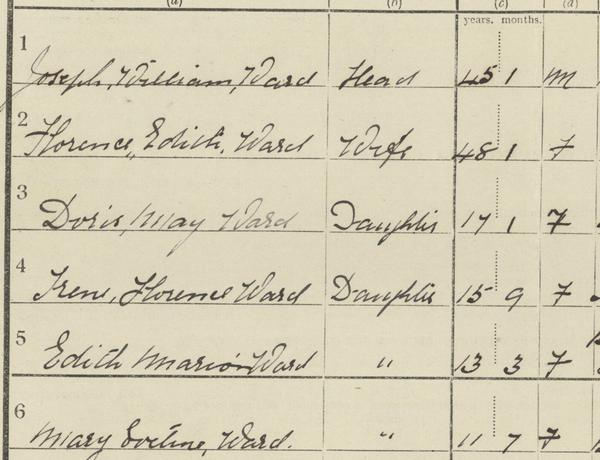 (a) (b) (c) (d)
years. months.
1 Joseph, William, Ward Head 45 1 M
2 Florence, Edith, Ward Wife 48 1 F
3 Doris, May Ward Daughter 17 1 F
4 Irene, Florence Ward Daughter 15 9 F
5 Edith Marion Ward " 13 3 F
6 Mary Eveline, Ward. " 11 7 F